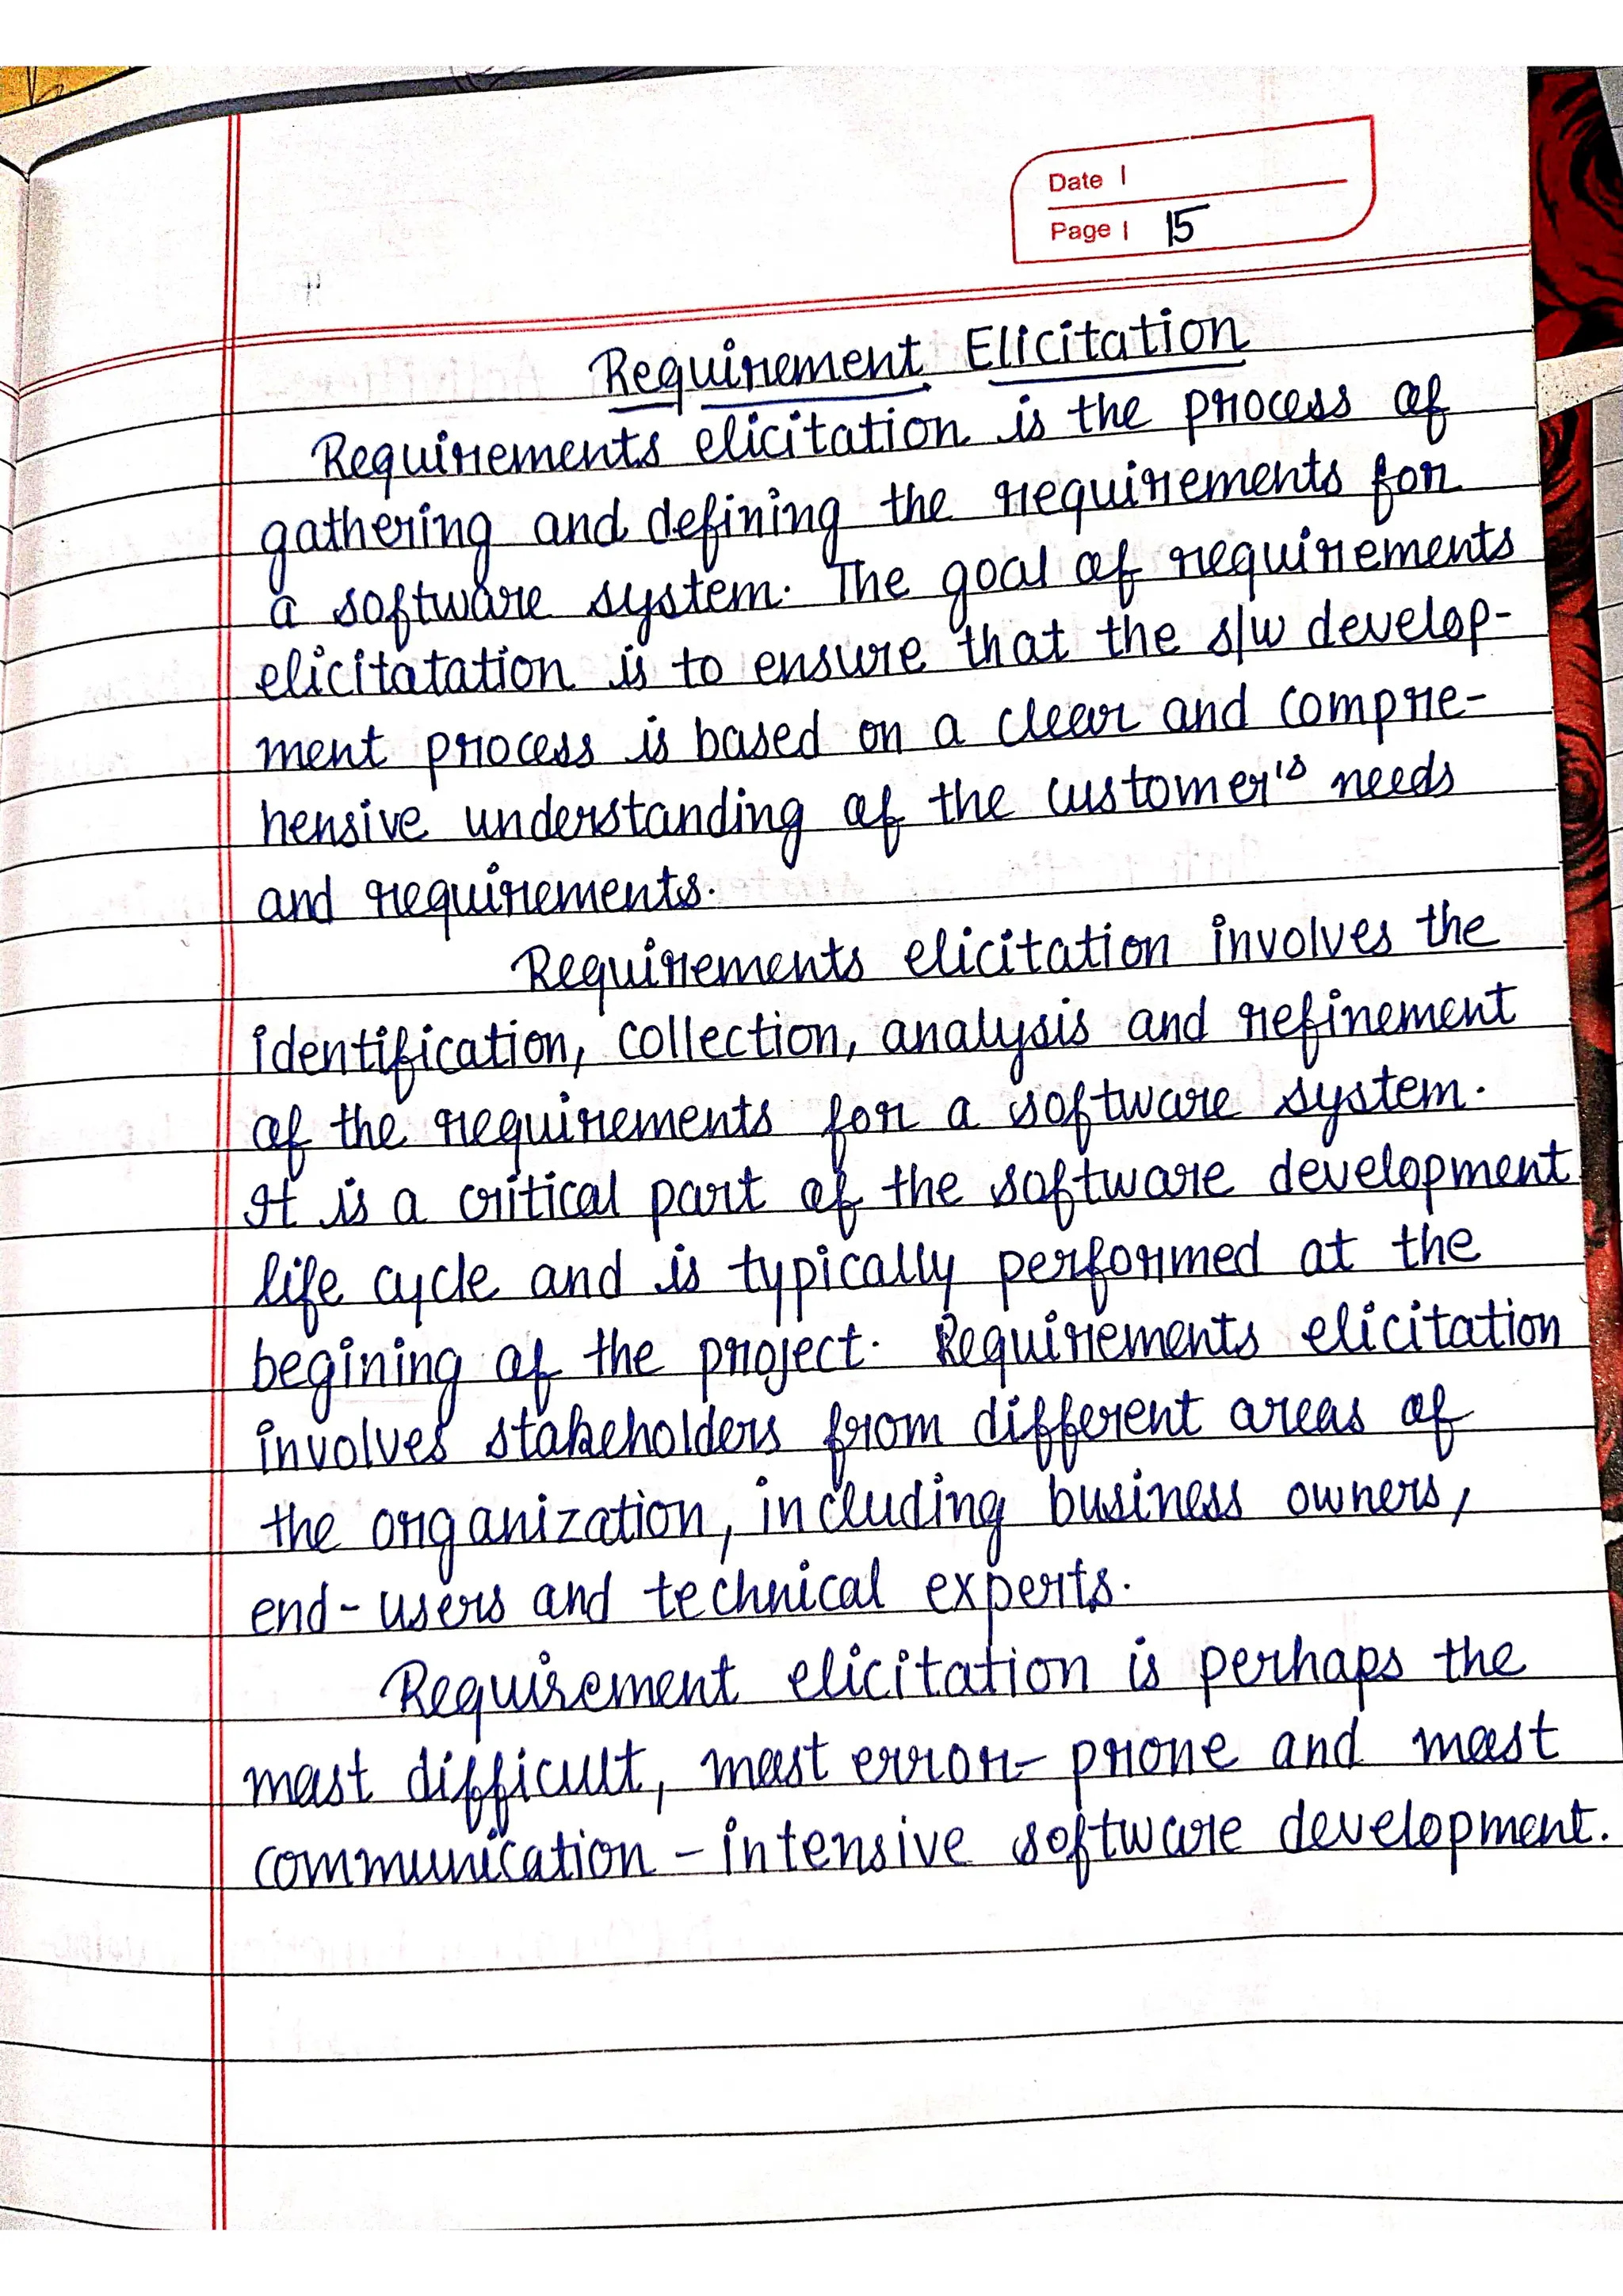 Date |
Page | 15
Requirement Elicitation
Requirements elicitation is the process of
gathering and defining the requirements for
a software system. The goal of requirements
elicitatation is to ensure that the s/w develop-
ment process is based on a clear and compre-
hensive understanding of the customer's needs
and requirements.
Requirements elicitation involves the
identification, collection, analysis and refinement
of the requirements for a software system.
It is a critical part of the software development
life cycle and is typically performed at the
begining of the project. Requirements elicitation
involves stakeholders from different areas of
the organization, including business owners,
end-users and technical experts.
Requirement elicitation is perhaps the
most difficult, most error-prone and most
communication-intensive software development.